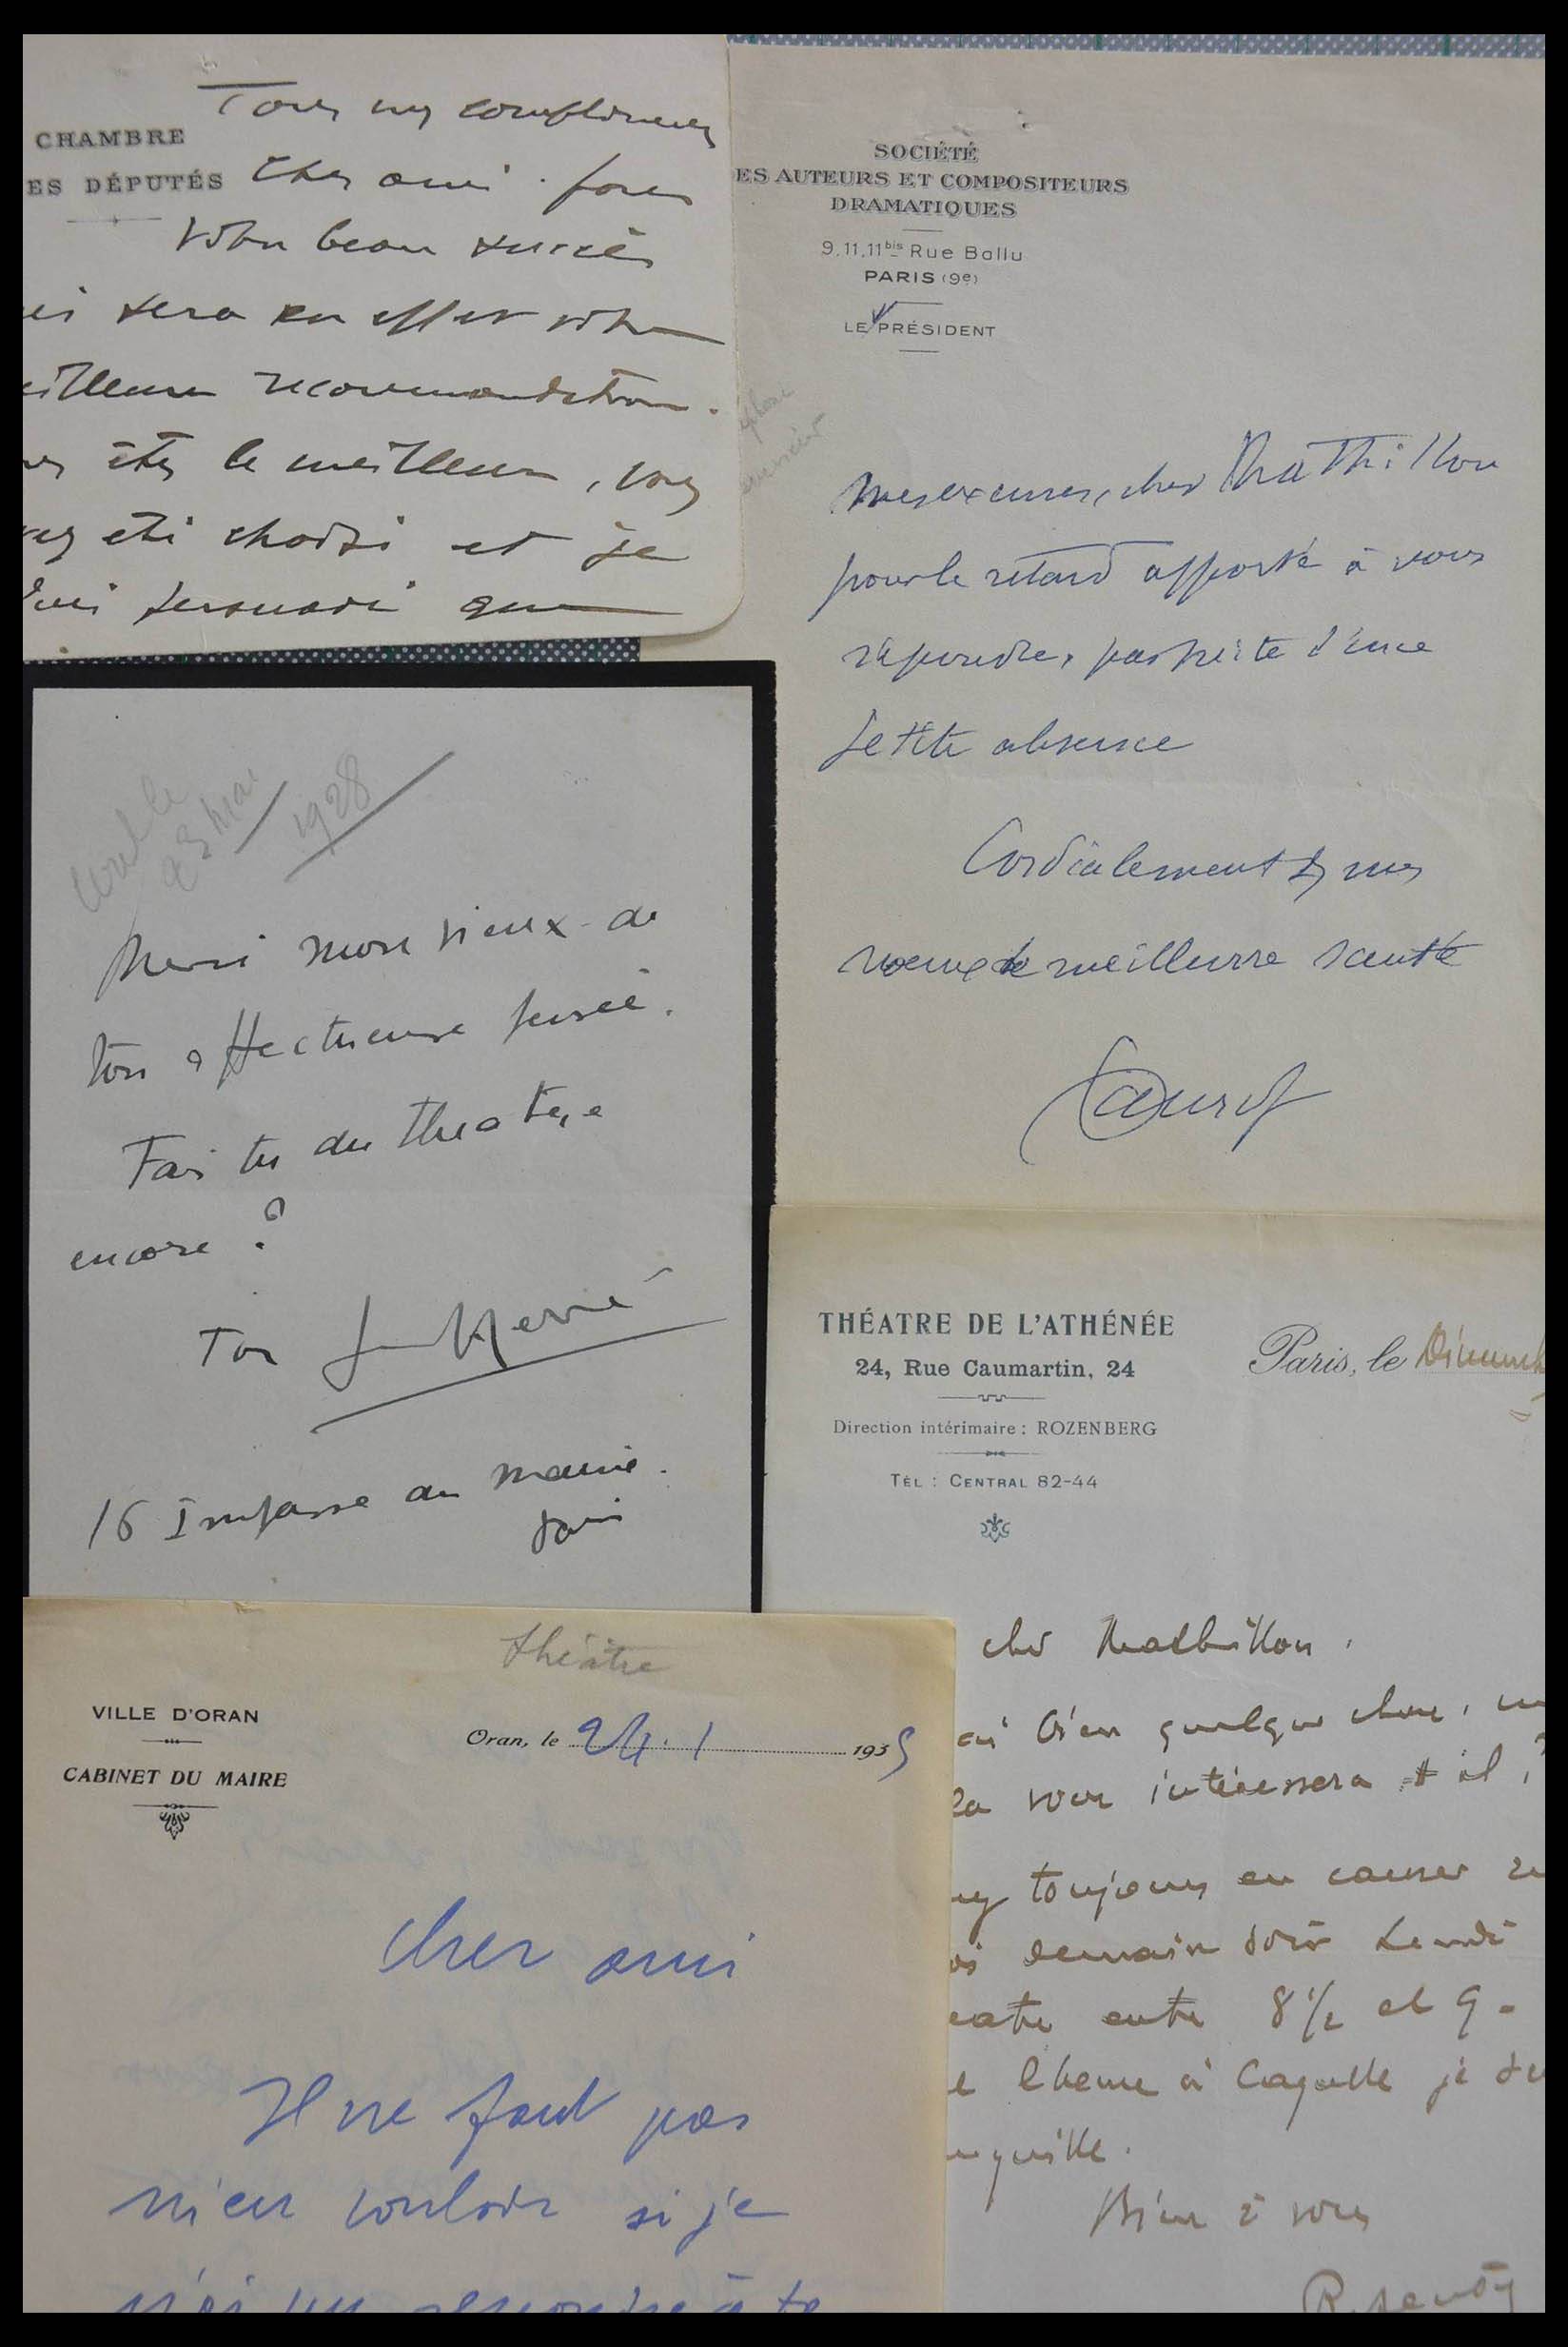 CHAMBRE
ES DÉPUTÉS
Tous mes compliments
cher ami pour
votre beau succès
ui sera en effet votre
eilleure recommandation.
us êtes le meilleur, vous
vez été choisi et je
suis persuadé que
SOCIÉTÉ
ES AUTEURS ET COMPOSITEURS
DRAMATIQUES
9.11.11bis Rue Ballu
PARIS (9e)
LE PRÉSIDENT
Mes excuses, cher Mathillon
pour le retard apporté à vous
répondre, par suite d'une
petite absence
Cordialement & mes
voeux de meilleure santé
23 Mai
1928
Merci mon vieux de
ton affectueuse pensée.
Fais tu du theatre
encore ?
Ton
16 Impasse du Maine.
Paris
THÉATRE DE L'ATHÉNÉE
24, Rue Caumartin, 24
Direction intérimaire : ROZENBERG
TÉL : CENTRAL 82-44
Paris, le Dimanch
cher Mathillon.
ai bien quelque chose,
la vous interessera t il ?
ez toujours en causer
demain soir Lundi
eatre entre 8 1/2 et 9 -
e l'heure à laquelle je su
nquille.
Bien à vous
théâtre
VILLE D'ORAN
CABINET DU MAIRE
Oran, le 24.1 1935
Cher ami
Il ne faut pas
m'en vouloir si je
n'ai pu repondre à ta